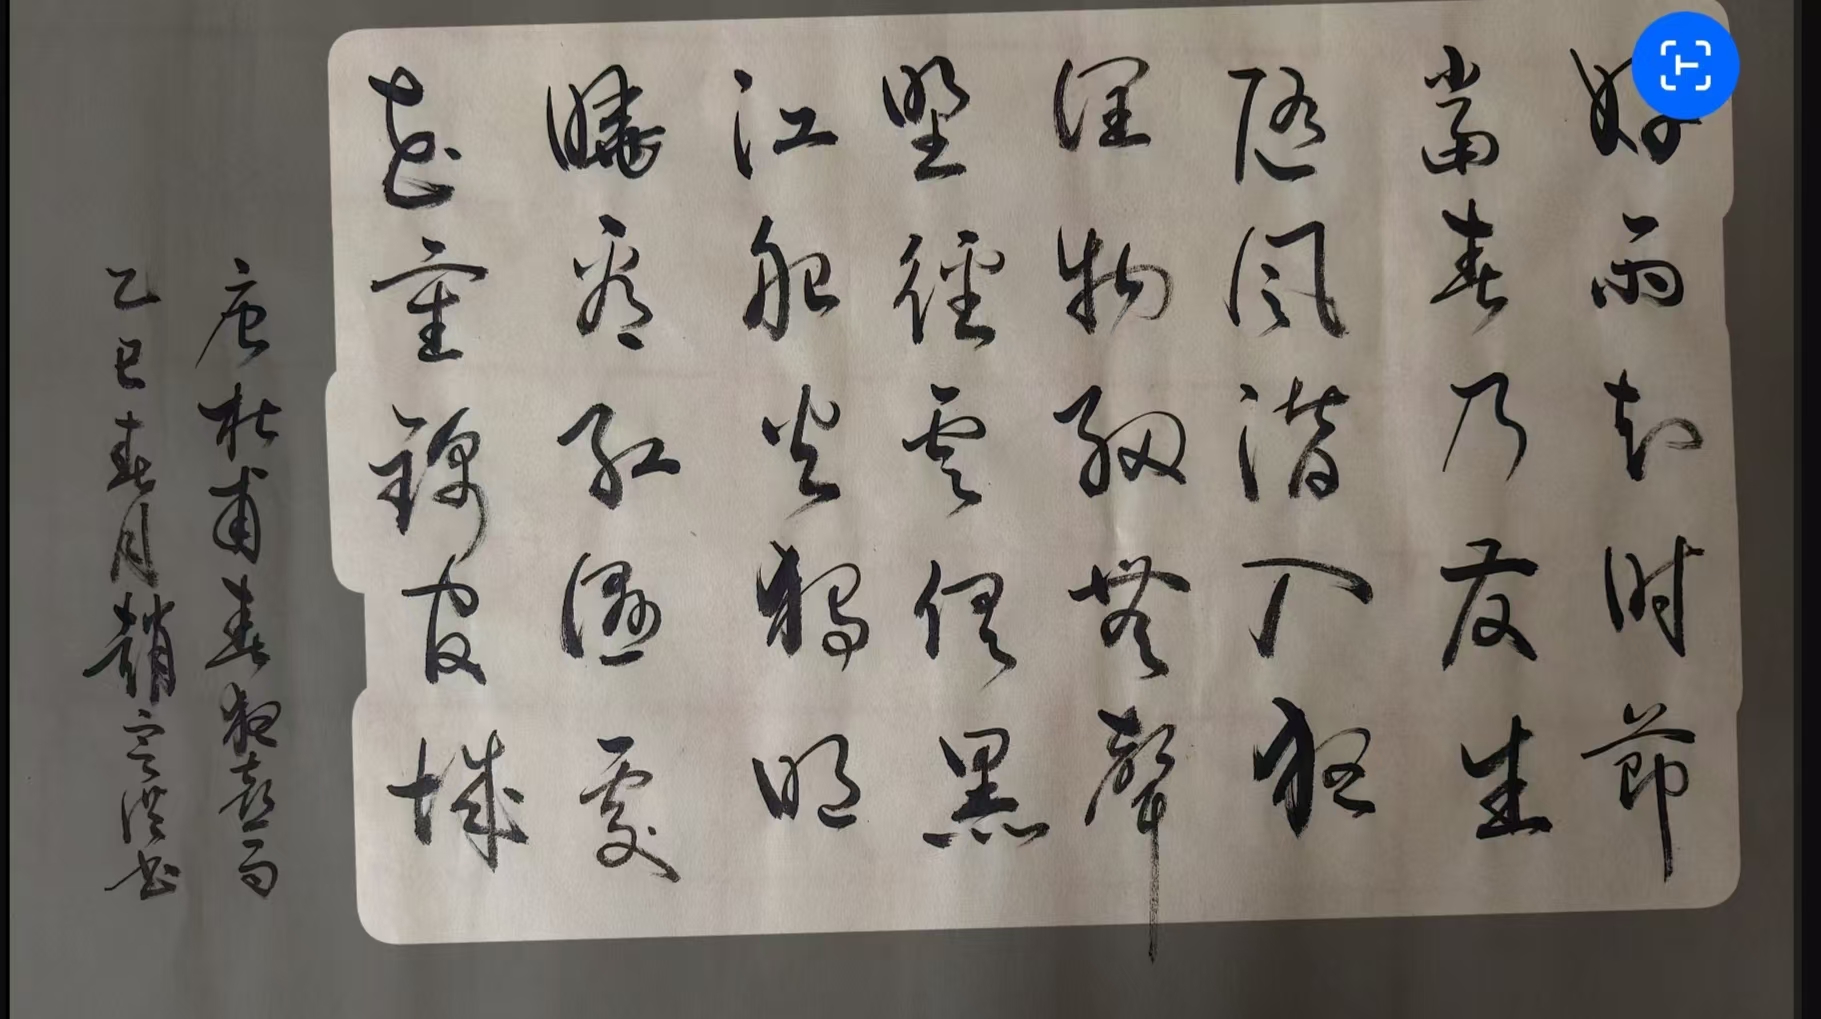 好雨知时節
當春乃发生
随風潜入夜
潤物細無聲
野徑雲俱黑
江船火獨明
曉看紅濕處
花重錦官城
唐杜甫春夜喜雨
乙巳春月趙洪书